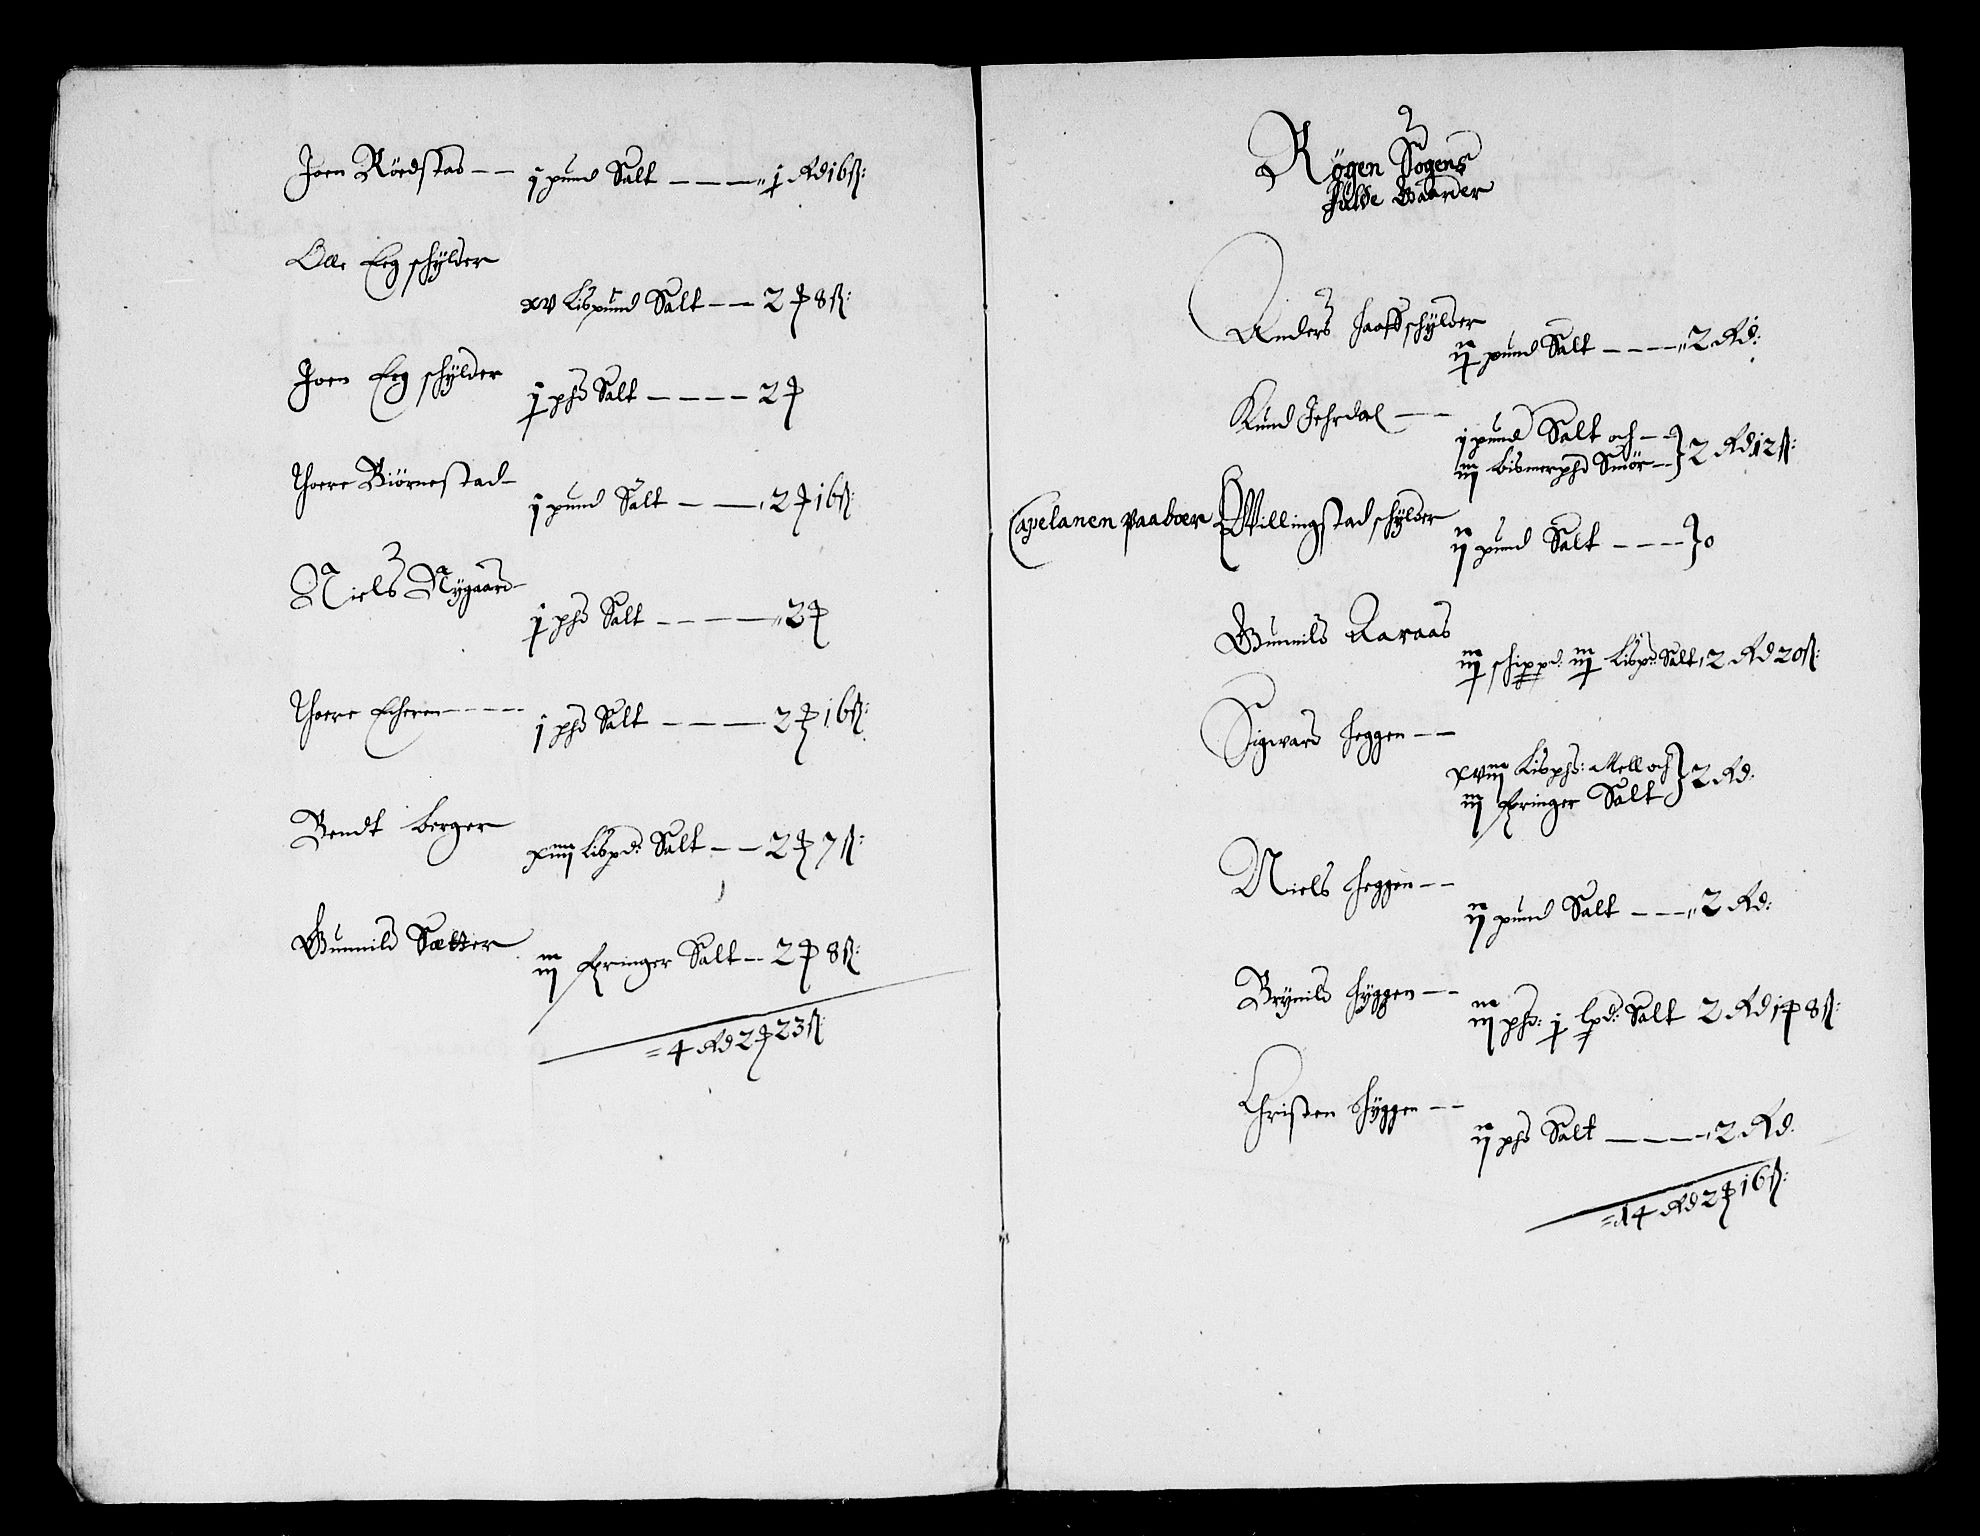 Joen Röedstad -- j pund Salt ---- 1 Rd 16 ß:
Olle Eeg schÿlder
xv Lispund Salt -- 2 ꝑ 8 ß:
Joen Eeg schÿlder
j phd Salt ---- 2 ꝑ
Thore Biörnestad -
j pund Salt --- 2 ꝑ 16 ß:
Niels Nygaard -
j phd Salt ---- 2 ꝑ
Thore Echeren ----
j phd Salt ---- 2 ꝑ 16 ß:
Bendt berger
xiiij Lispd: Salt -- 2 ꝑ 7 ß:
Gunnild Sætter
iij fpringer Salt -- 2 ꝑ 8 ß:
= 4 Rd 2 ꝑ 23 ß:
Rögen Sogens
fulde Gaarder
Anders haaff schÿlder
ij pund Salt ---- 2 Rd:
Knud Jehrdal --
j pund Salt och --
iij bismerphd Smör -- } 2 Rd 12 ß:
Capelanen paaboer { Willingstad schÿlder
ij pund Salt ---- } 0
Gunnild Aaraas
iij schippd: iij Lispd: Salt, 2 Rd 20 ß:
Sigvard heggen --
xviij Lisphd: Mell och
iij fpringer Salt } 2 Rd.
Niels heggen --
ij pund Salt --- 2 Rd:
Brÿnild hÿggen --
iij phd: j lpd: Salt 2 Rd 1 ꝑ 8 ß:
Christen hÿggen --
ij phd Salt ---- 2 Rd.
= 14 Rd 2 ꝑ 16 ß: